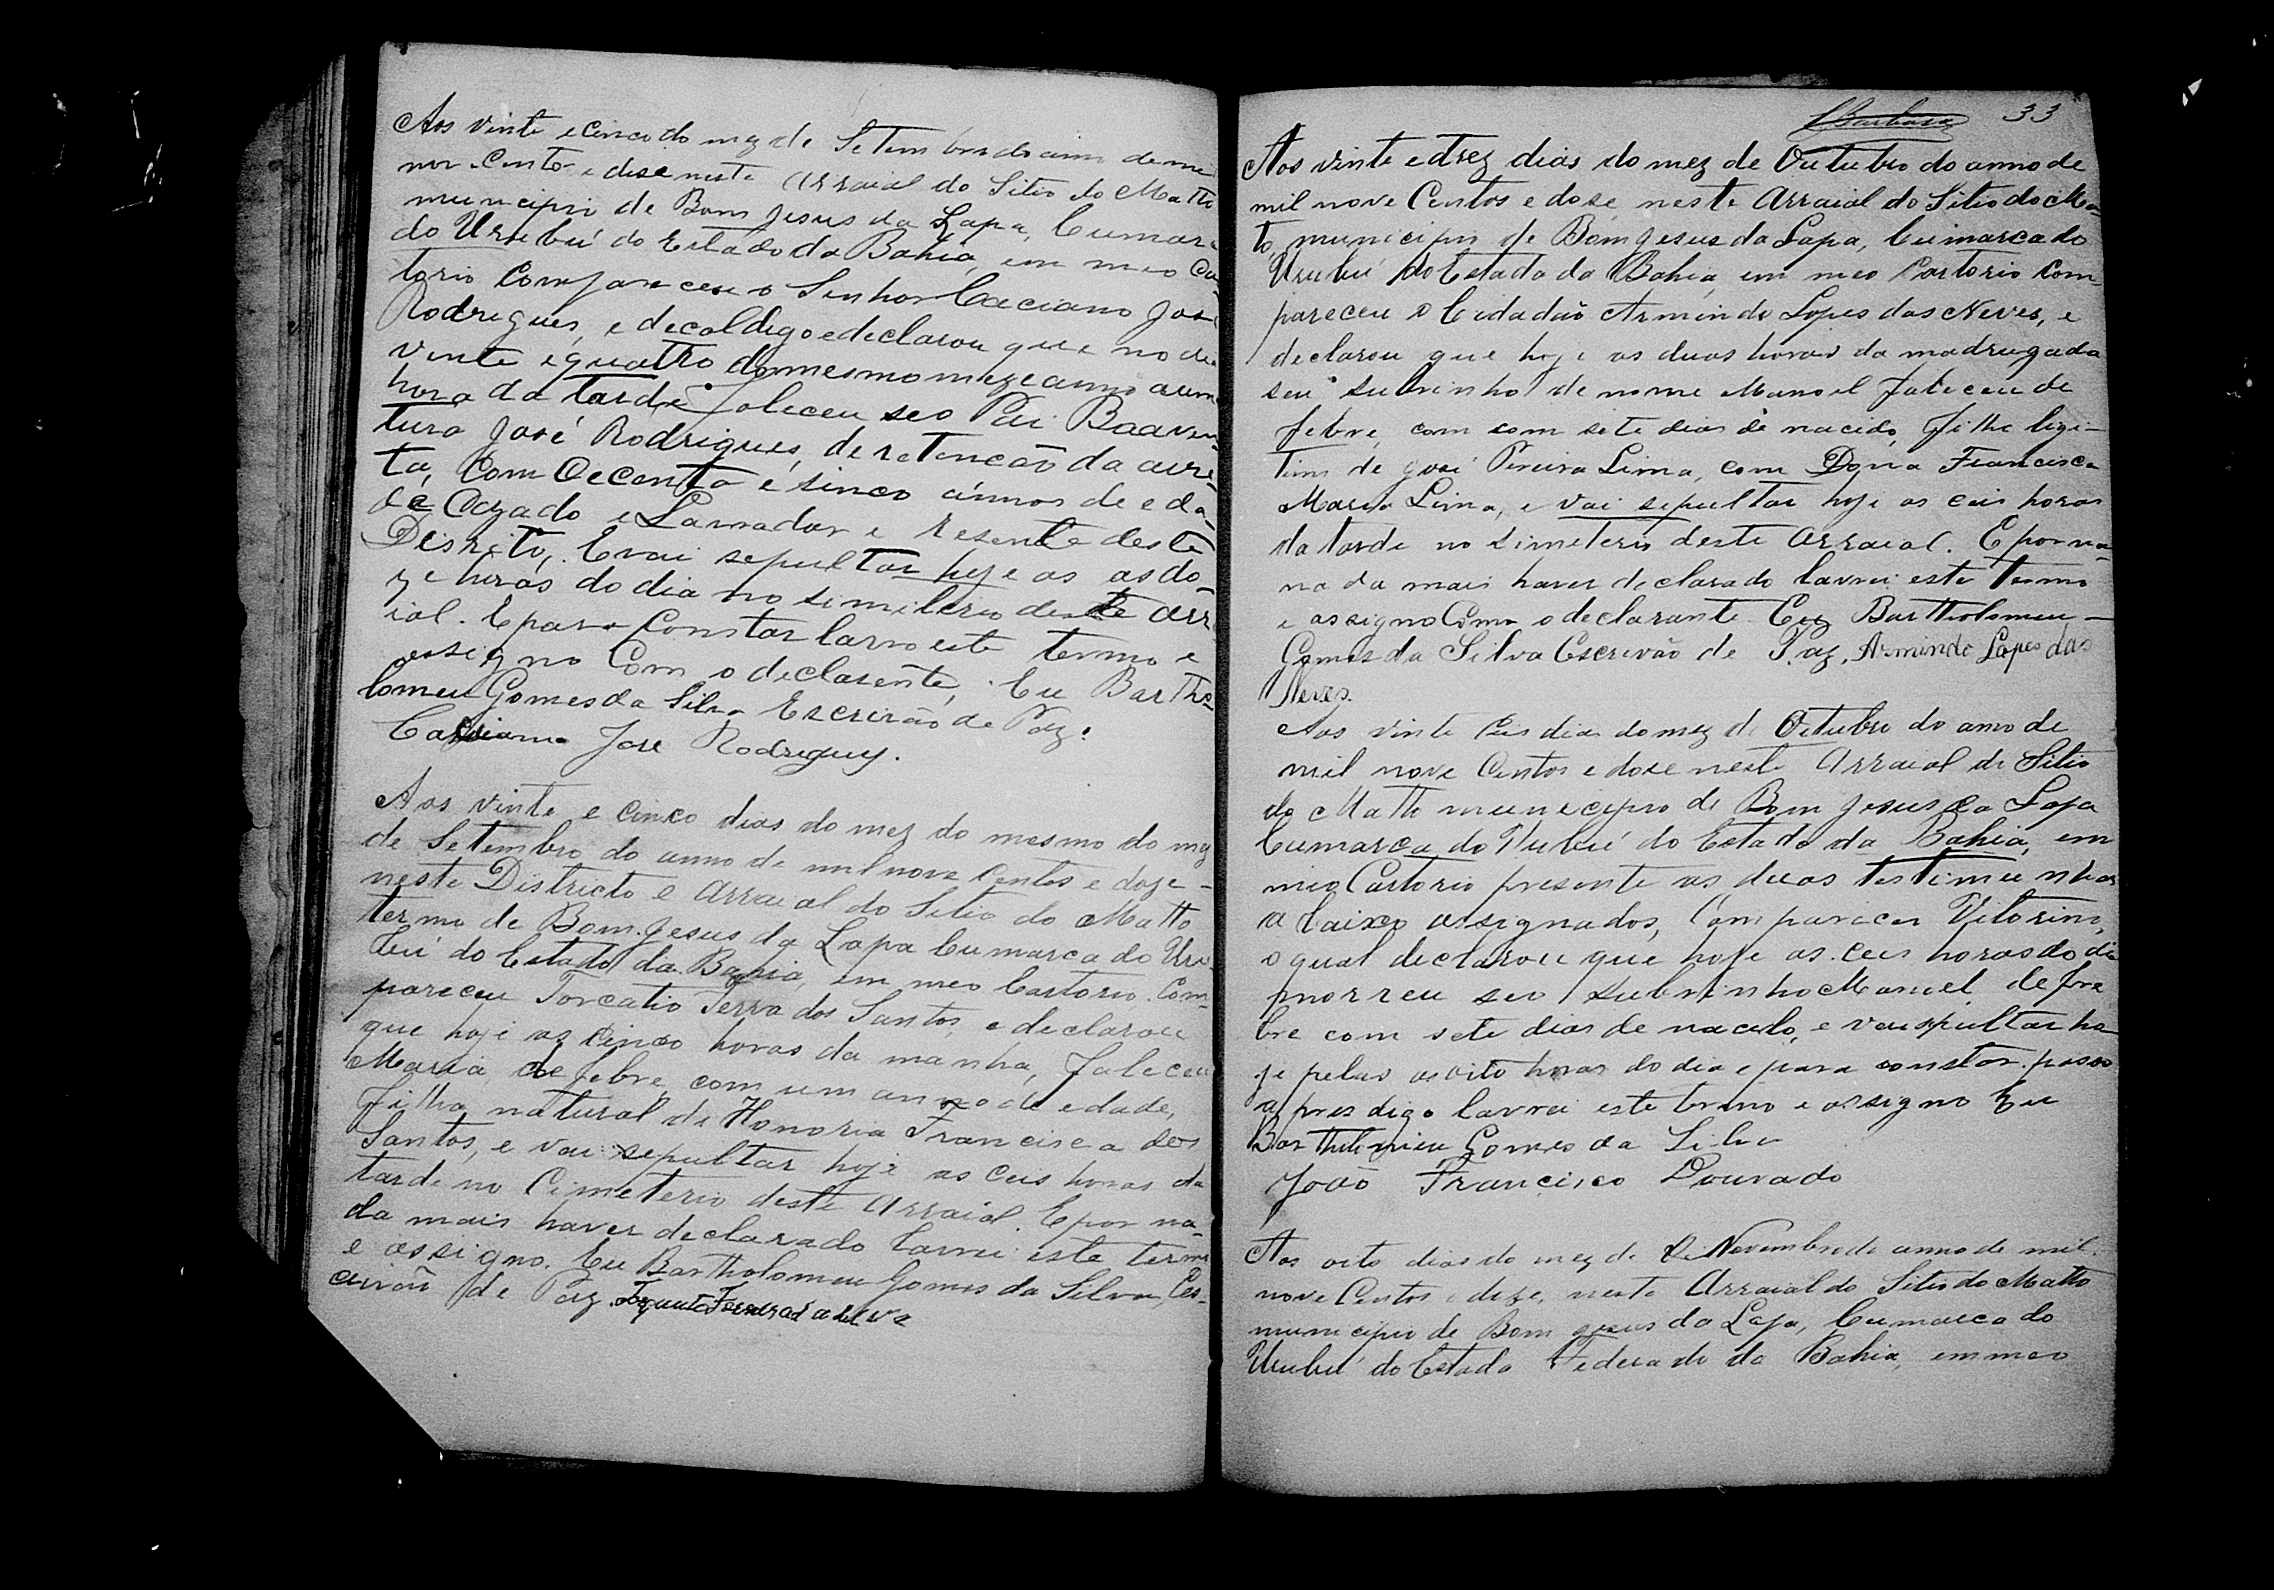 Aos vinte e cinco do mez de Setembro do anno de mil
nov Centos e dose neste Arraial do Sitio do Matto
municipio de Bom Jesus da Lapa, Cumarca
do Urubú do Estado da Bahia, em meo Car-
torio Compareceu o Senhor Caciano José
Rodrigues, e decaldigo e declarou que no dia
vinte e quatro do mesmo mez e anno a uma
hora da tarde, faleceu seo Pai Boaven-
tura José Rodrigues, de retenção da
ta, Com Oecenta e sinco annos de eda-
de Cazado e Lavrador e resente deste
Desrito, E vai sepultar hoje as as do-
ze horas do dia no simiterio deste arra
ial. E para Constar larvo este termo e
assigno Com o declarente, Eu Bartho-
lomeu Gomes da Silva Escrivão de Paz.
Cassiano José Rodrigues.
Aos vinte e cinco dias do mez do mesmo do mez
de Setembro do anno de mil nove Centos e doze -
neste Districto e Arraial do Sitio do Matto
termo de Bom Jesus da Lapa Cumarca do Uru-
bú do Estado da Bahia, em meo Cartorio. Com-
pareceu Torcatio Terra dos Santos, e declarou
que hoje as cinco horas da manha, faleceu
Maria de febre, com um anno de edade,
filha natural de Honoria Francisca dos
Santos, e vai sepultar hoje as ceis horas da
tarde no Cimeterio deste Arraial. E por na-
da mais haver declarado lavrei este termo
e assigno. Eu Bartholomeu Gomes da Silva, Es-
crivão de Paz.
Barbosa 33
Aos vinte e trez dias do mez de Outubro do anno de
mil nove Centos e dose neste Arraial do Sitio do Ma-
to, municipio de Bom Jesus da Lapa, Cumarca do
Urubú do Estado da Bahia, em meo Cartorio Com
pareceu o Cidadão Armindo Lopes das Neves, e
declarou que hoje as duas horas da madrugada
seu subrinho de nome Manoel faleceu de
febre, com com sete dias de nacido, filho ligi-
timo de José Pereira Lima, com Dona Francisca
Maria Lima, e vai sepultar hoje as ceis horas
da tarde no simeterio deste Arraial. E por na-
na da mais haver declarado lavrei este termo
e assigno Com o declarante Eu Bartholomeu -
Gomes da Silva Escrivão de Paz. Armindo Lopes das
Neves.
Aos vinte Ceis dia do mez de Octubro do anno de
mil nove Centos e doze neste Arraial do Sitio
do Matto municipio de Bom Jesus da Lapa
Cumarca do Urubú do Estado da Bahia, em
meo Cartorio presente as duas testimunhas
a baixo assignados, Compareceu Vitorino,
o qual declarou que hoje as ceis horas do dia
morreu seo subrinho Manuel de fre
bre com sete dias de nacido, e vai spultar ho
je pelas as oito horas do dia e para constar
a pres digo lavrei este termo e assigno Eu
Bartholomeu Gomes da Silva
João Francisco Dourado
Aos oito dias do mez de de Novembro do anno de mil
nove Centos e doze, neste Arraial do Sitio do Matto
municipio de Bom Jesus da Lapa, Cumarca do
Urubú do Estado Federado da Bahia, em meo